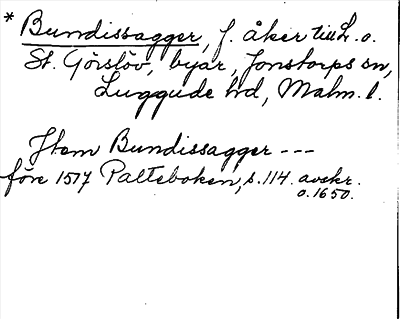 * Bundissagger, f. åker till L. o.
St. Görslöv, byar, Jonstorps sn,
Luggude hd, Malm. l.
Item Bundissagger ---
före 1517 Palteboken, s. 114. avskr.
o. 1650.